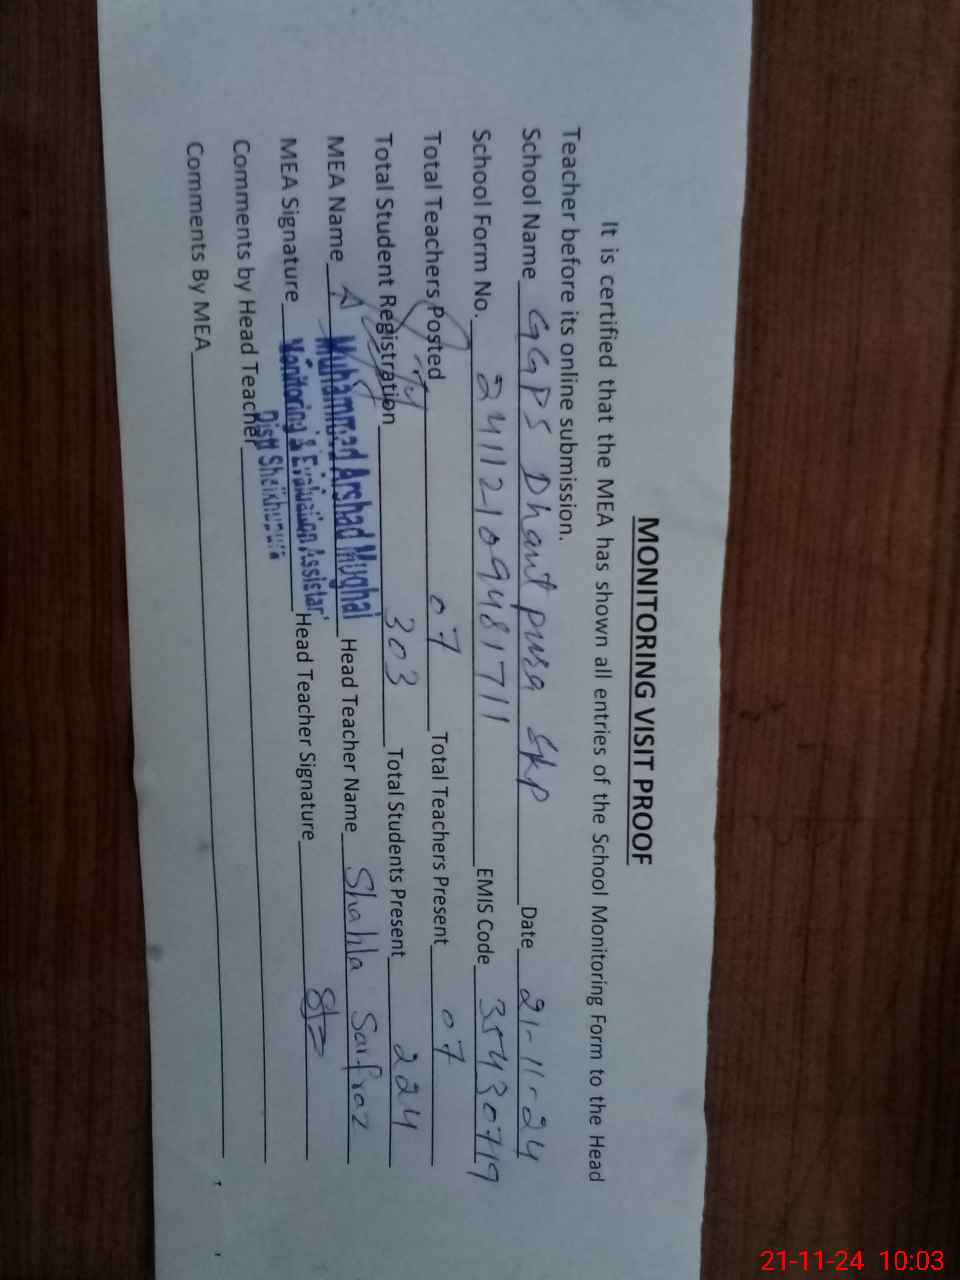 MONITORING VISIT PROOF
It is certified that the MEA has shown all entries of the School Monitoring Form to the Head
Teacher before its online submission.
School Name GGPS Dhant pura SKP Date 21-11-24
School Form No. 24112109481711 EMIS Code 35430719
Total Teachers Posted 07 Total Teachers Present 07
Total Student Registration 303 Total Students Present 224
MEA Name Muhammad Arshad Mughal Head Teacher Name Shahla Sarfraz
MEA Signature Monitoring & Evaluation Assistant Head Teacher Signature
Distt Sheikhupura
Comments by Head Teacher
Comments By MEA
21-11-24 10:03